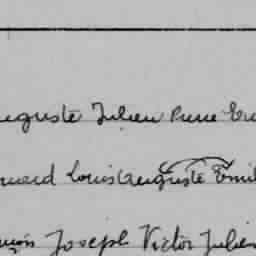 uguste Julien Pierre Eu
rnard Louis Auguste Emil
nçois Joseph Victor Julien